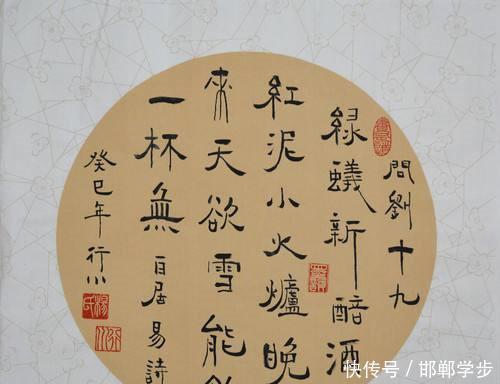 問劉十九
緑蟻新醅酒
紅泥小火爐晚
來天欲雪能
一杯無 白居易詩
癸巳年行
快传号/邯郸学步